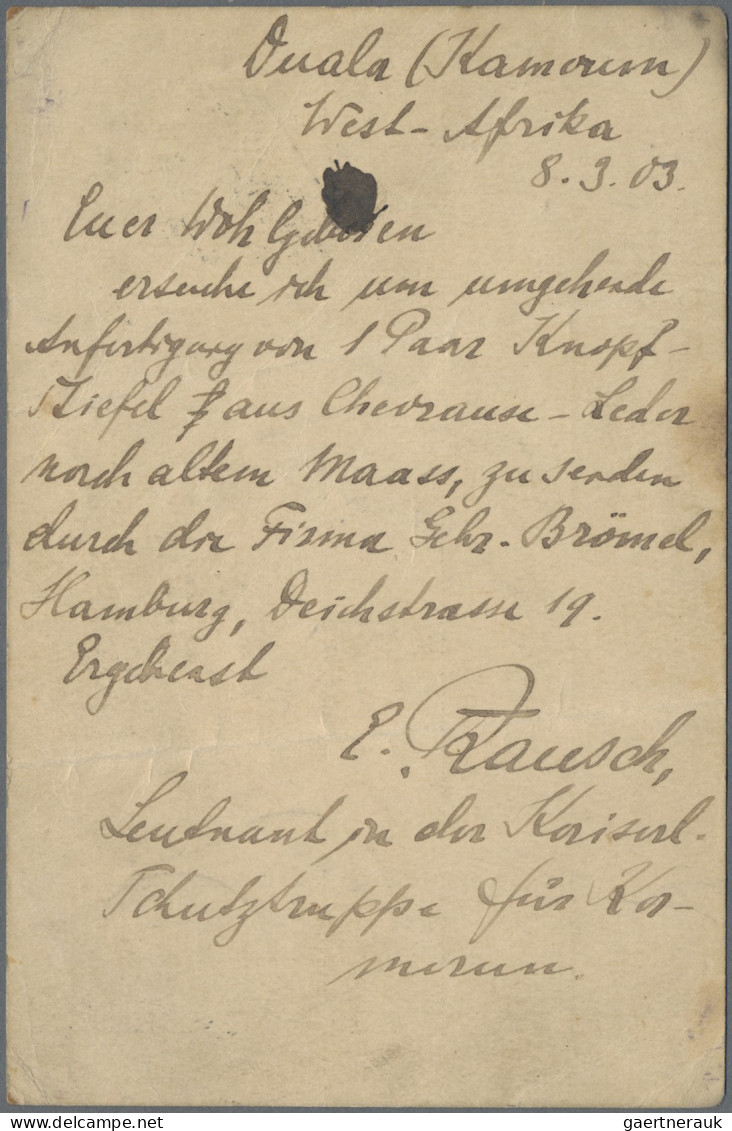 Duala (Kamerun)
West-Afrika
8. 3. 03.
Euer Wohlgeboren
ersuche ich um umgehende
Anfertigung von 1 Paar Knopf-
Stiefel aus Chevreause-Leder
nach altem Maass, zu senden
durch die Firma Gebr. Brömel,
Hamburg, Deichstrasse 19.
Ergebenst
E. Rausch,
Leutnant in der Kaiserl.
Schutztruppe für Ka-
merun.
www.delcampe.net
gaertnerauk